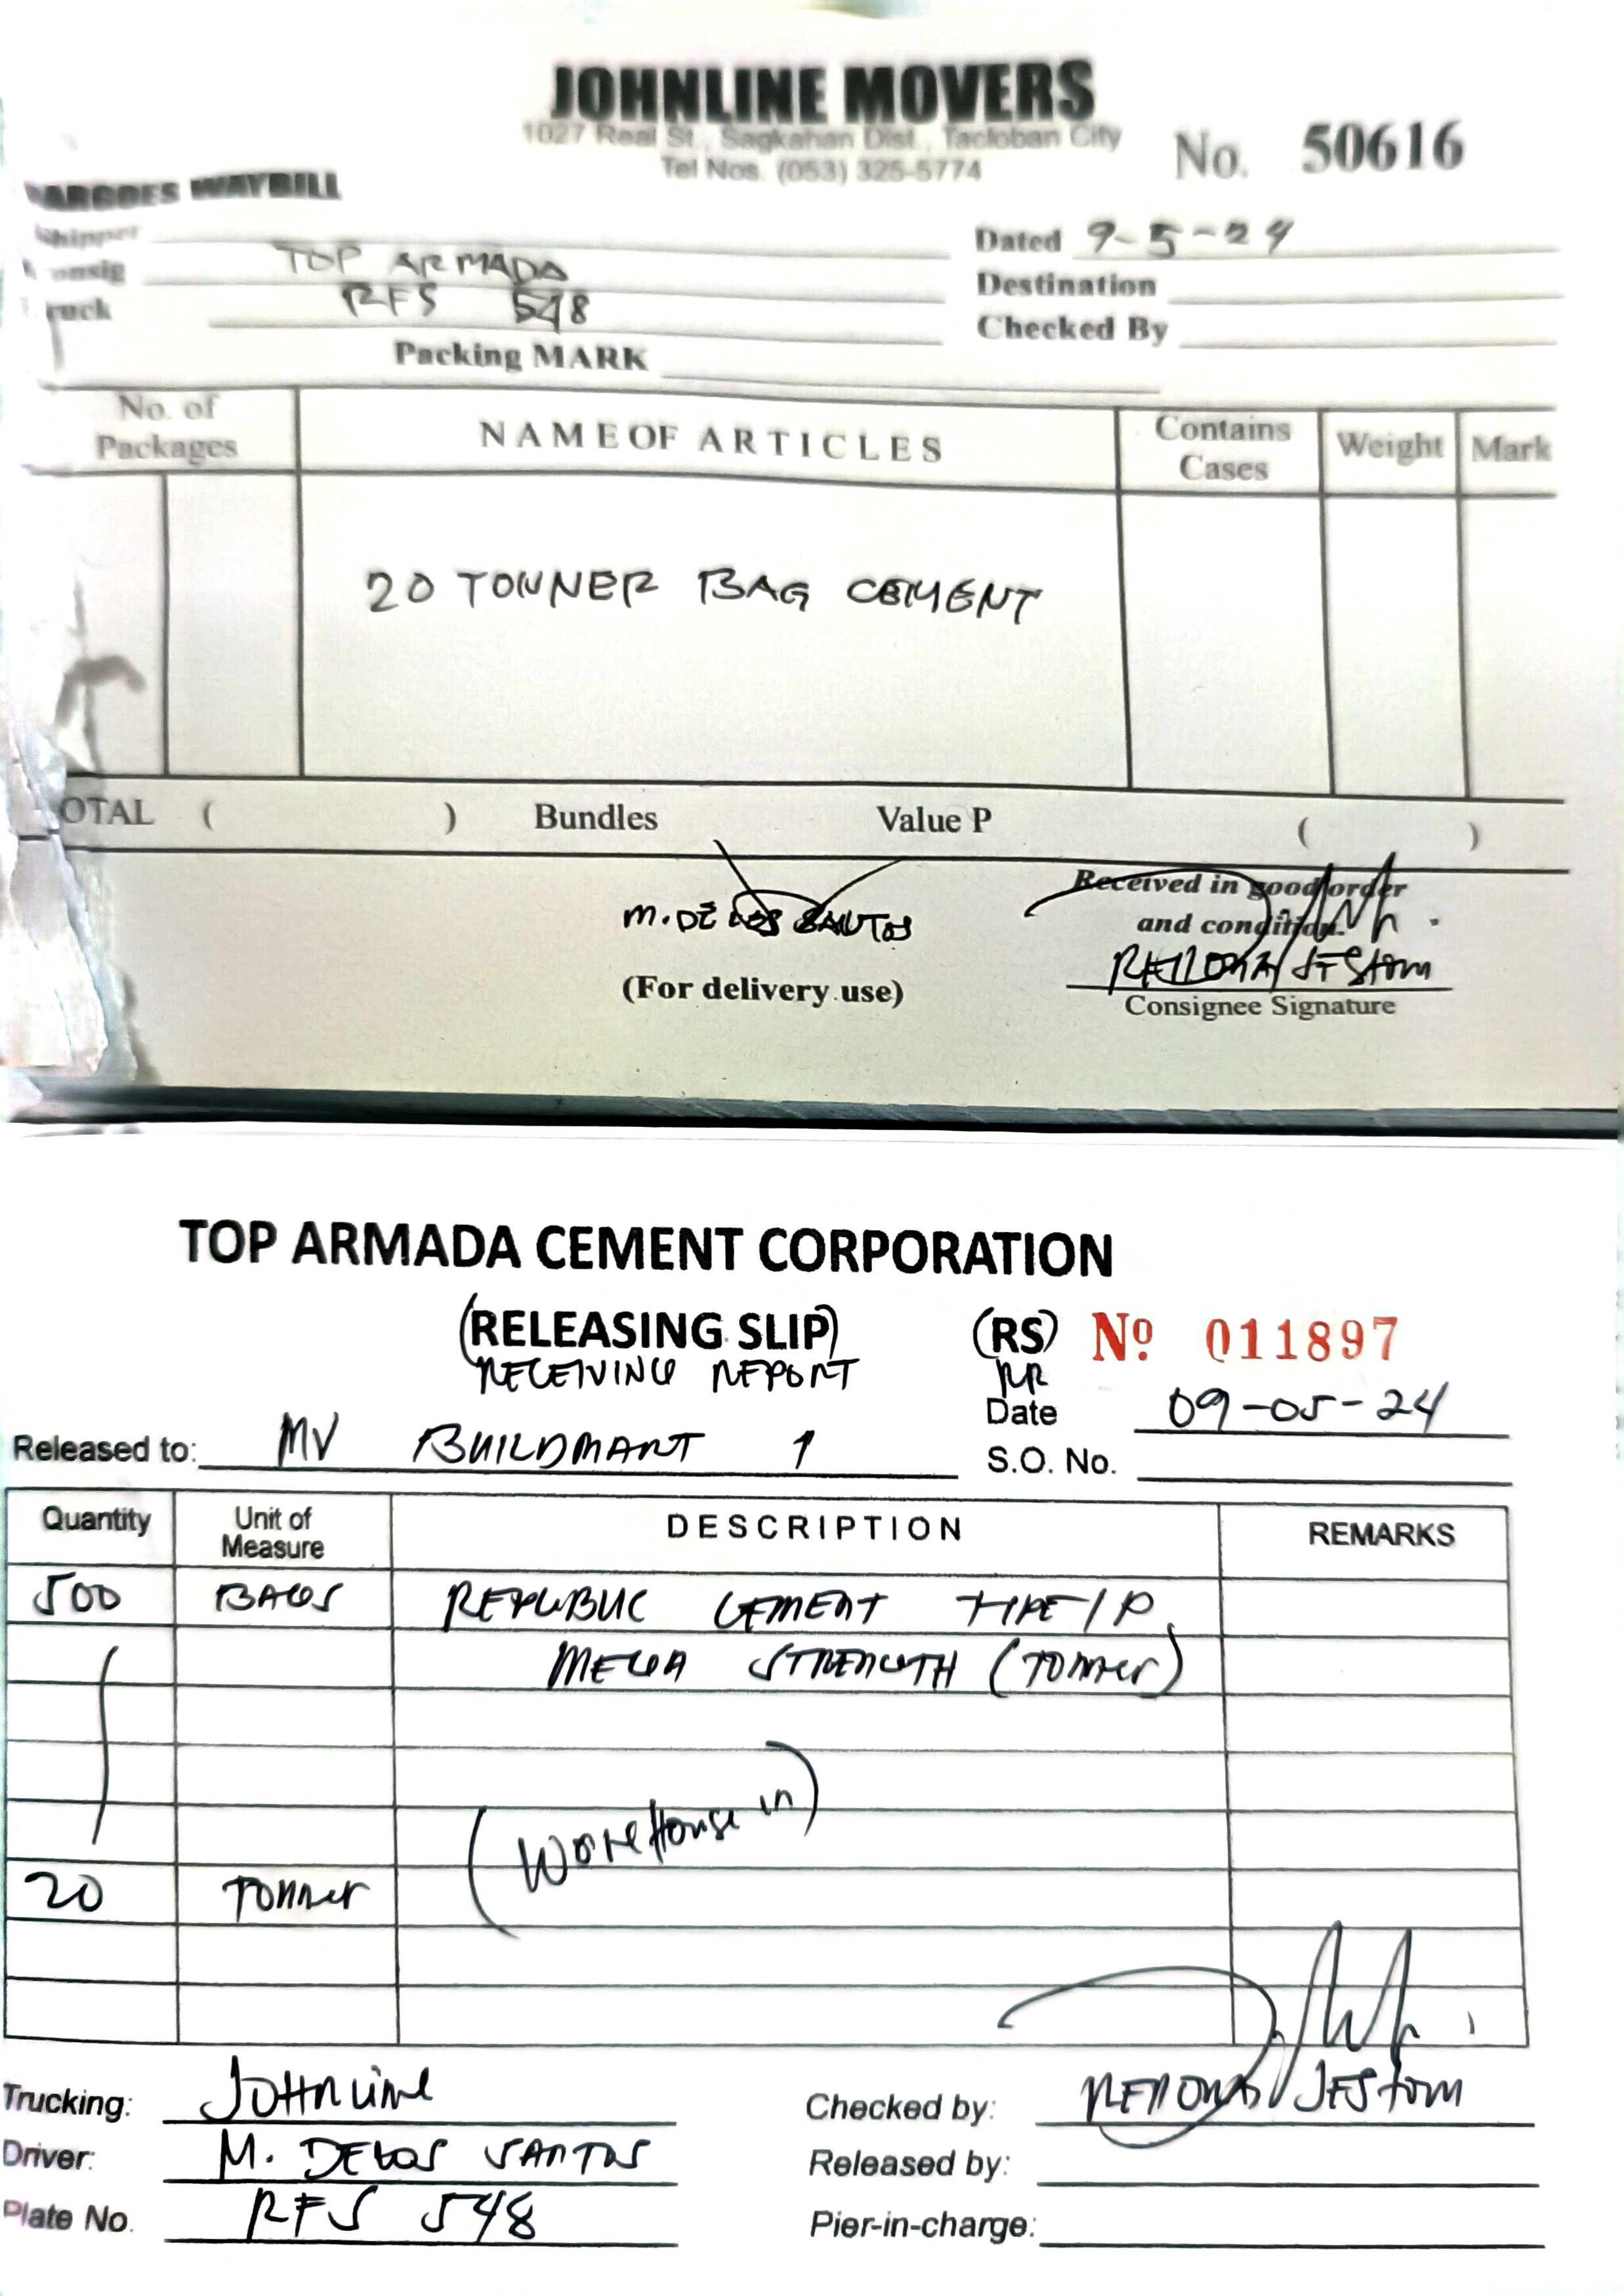 JOHNLINE MOVERS
1027 Real St., Sagkahan Dist., Tacloban City
Tel Nos. (053) 325-5774
No. 50616
ARGOES WAYBILL
Shipper
Dated 9-5-24
onsig TOP ARMADA
Destination
ruck RFS 548
Checked By
Packing MARK
No. of Packages
NAME OF ARTICLES
Contains Cases
Weight
Mark
20 TONNER BAG CEMENT
OTAL ( ) Bundles Value P ( )
Received in good order
and condition.
M. DE LOS SANTOS
JESTOM
(For delivery use)
Consignee Signature
TOP ARMADA CEMENT CORPORATION
(RELEASING SLIP) (RS) Nº 011897
RECEIVING REPORT RR
Date 09-05-24
Released to: MV BUILDMART 1
S.O. No.
Quantity
Unit of Measure
DESCRIPTION
REMARKS
500 BAGS REPUBLIC CEMENT TYPE 1P
MEGA STRENGTH (TONNER)
(WAREHOUSE IN)
20 TONNER
Trucking: JOHNLINE
Checked by: JESTOM
Driver: M. DELOS SANTOS
Released by:
Plate No. RFS 548
Pier-in-charge: